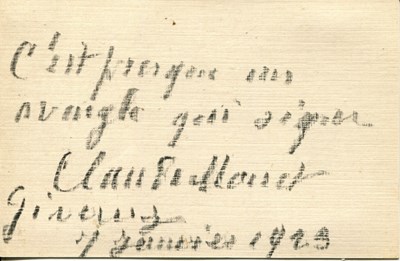 C'est presque un
aveugle qui signe
Claude Monet
Giverny
7 janvier 1923